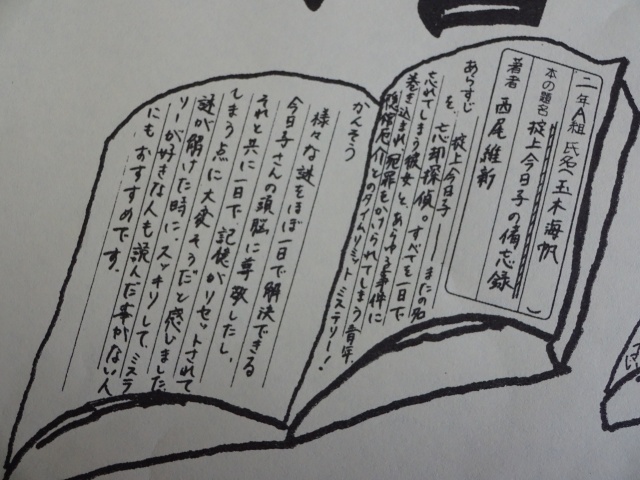 二年A組 氏名(玉木海帆)
本の題名 掟上今日子の備忘録
著者 西尾維新
あらすじ 掟上今日子――またの名
を、忘却探偵。すべてを一日で
忘れてしまう彼女と、あらゆる事件に
巻き込まれ、犯罪をかけられてしまう青年、
隠館厄介とのタイムリミットミステリー!
かんそう
様々な謎をほぼ一日で解決できる
今日子さんの頭脳に尊敬したし、
それと共に一日で記憶がリセットされて
しまう点に大変そうだと感じました。
謎が解けた時に、スッキリして、ミステ
リーが好きな人も読んだ事がない人
にもおすすめです。